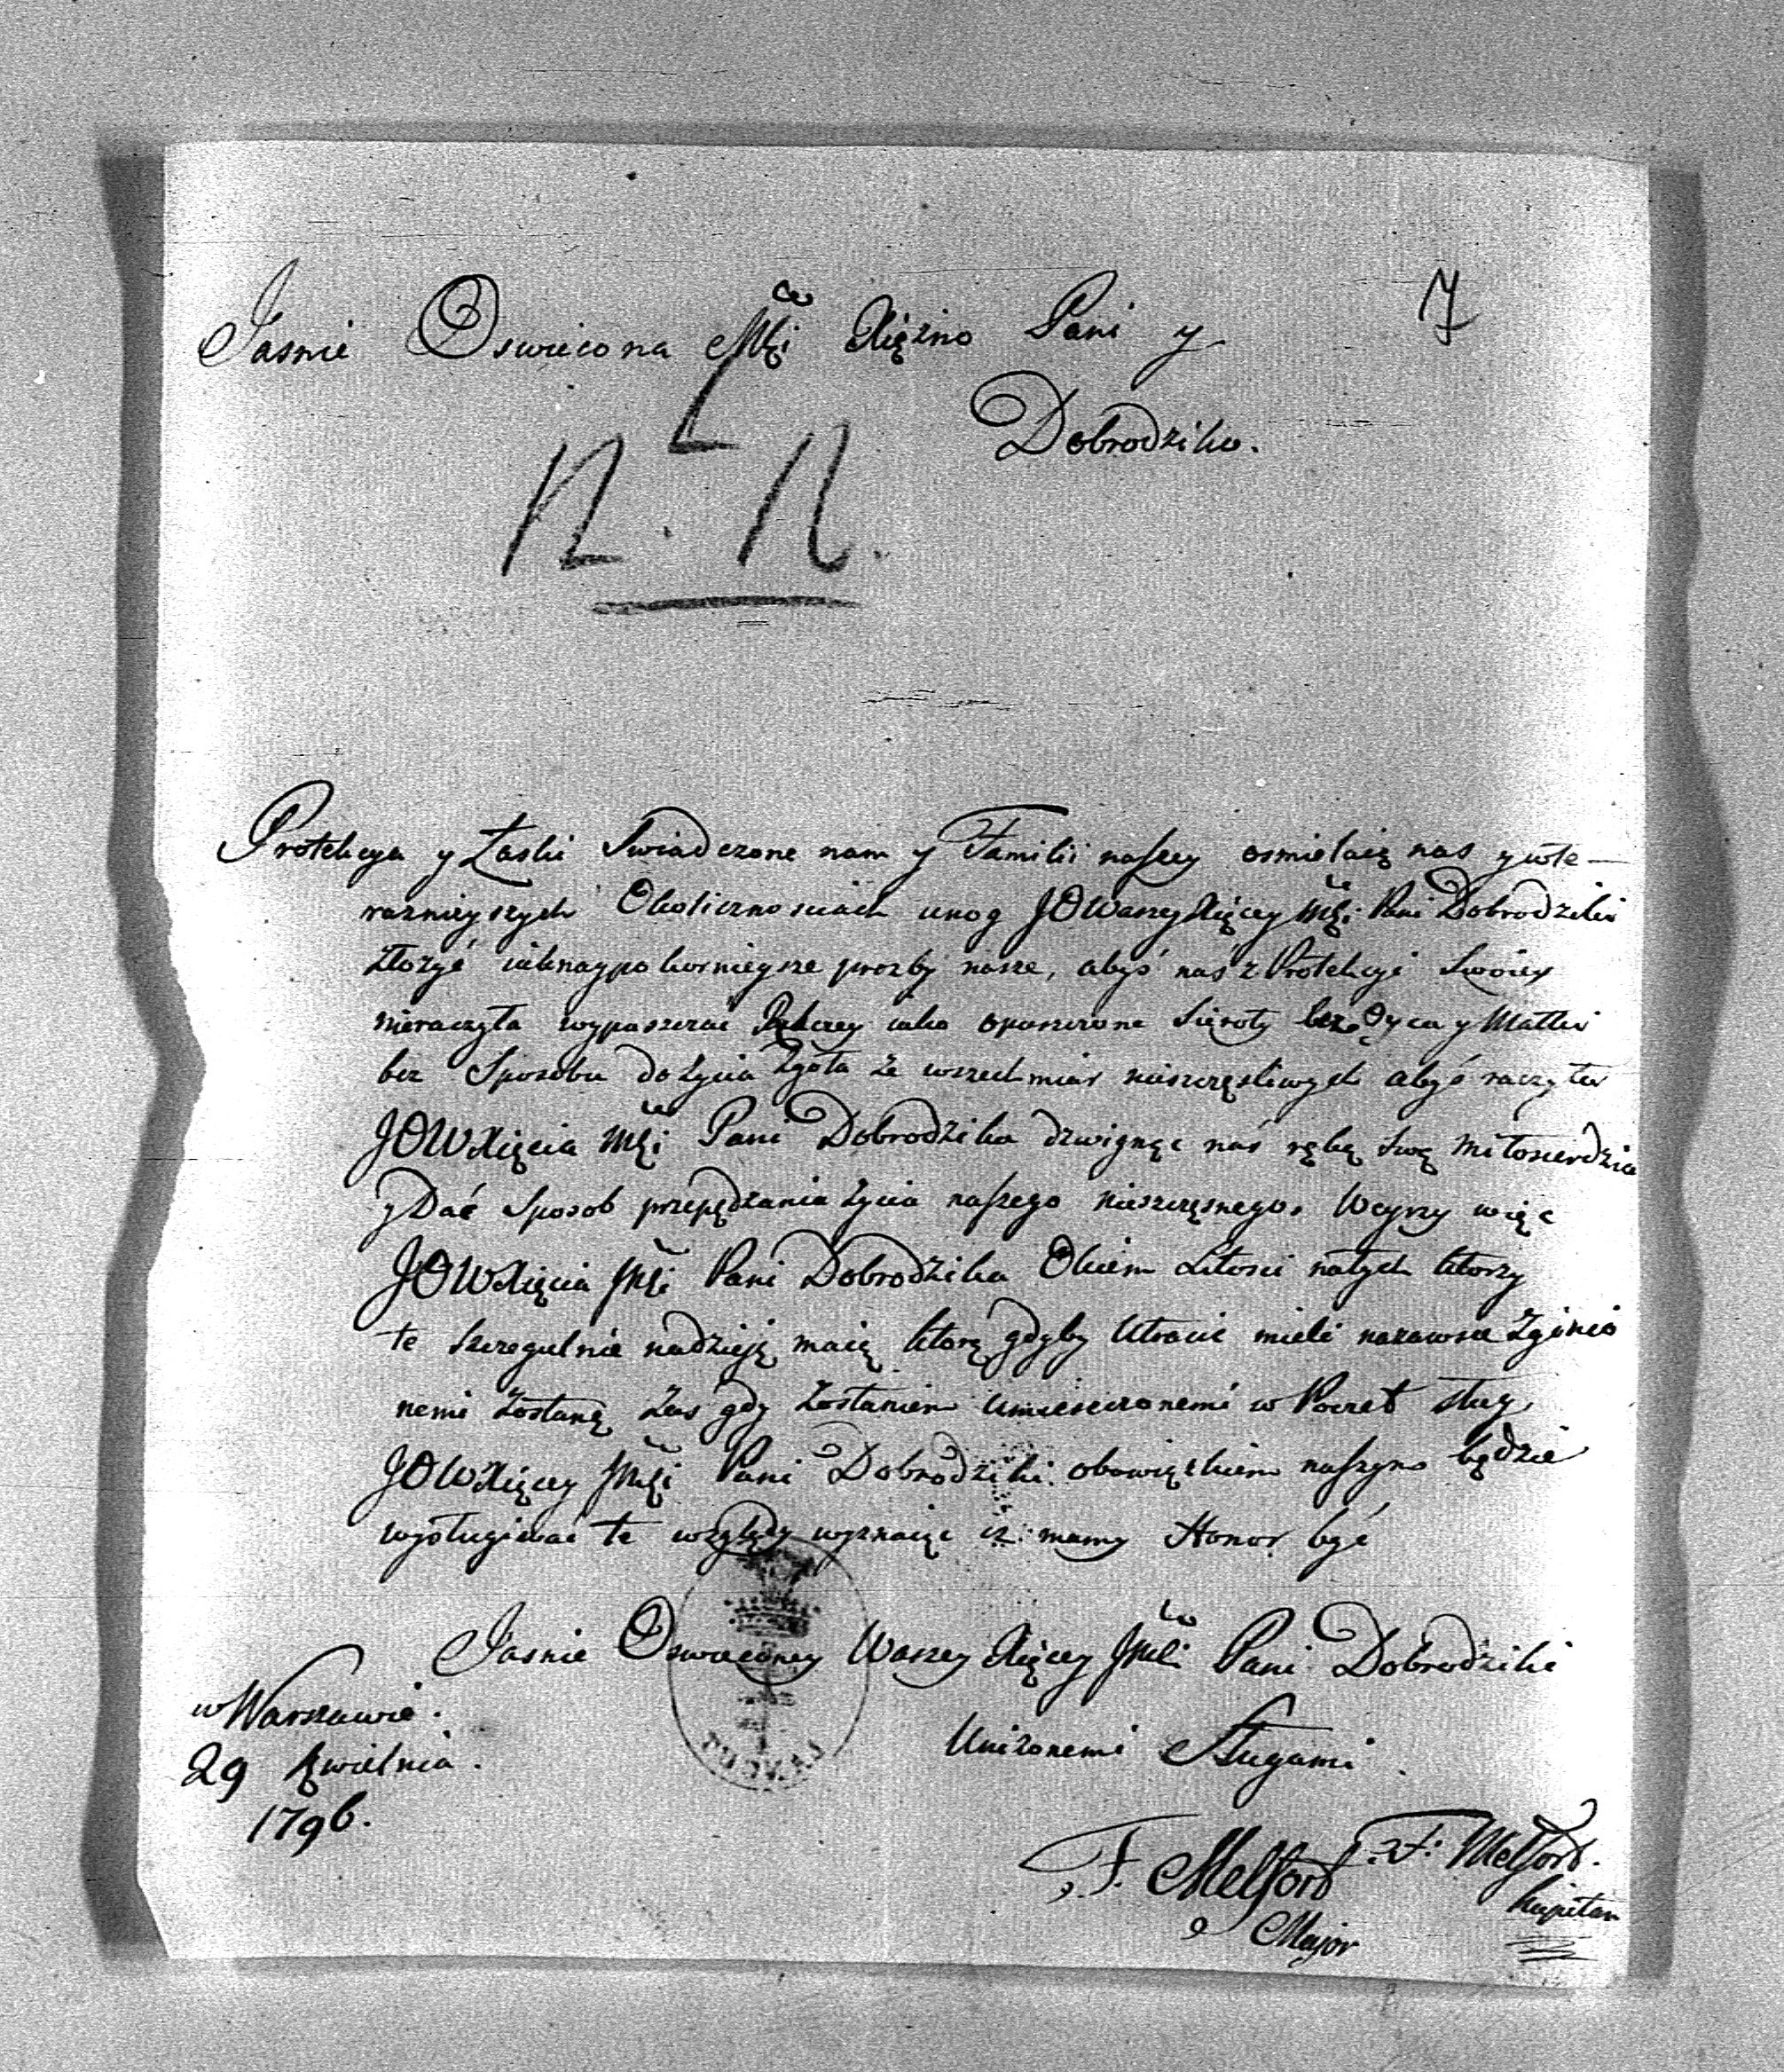 7
Jasnie Oswiecona Mći Xiężno Pani y
Dobrodziko.
N. N.
Protekcya y Łaski Swiadczone nam y Familii naszey osmielaią nas y wte-
raznieyszych Okolicznosciach unog JOWaszey Xięcey Mći Pani Dobrodziki
złożyć iaknaypokornieysze prozby nasze, abyś nas z Protekcyi Swoiey
nieraczyła wypuszczać jako opuszczone Sieroty bez Oyca y Matki
bez Sposobu do życia zgoła ze wszechmiar nieszczęsliwych abyś raczyła
JOWXięcia Mći Pani Dobrodzika dzwignąc nas ręką swą miłosierdzia
y Dać Sposob przepędzania życia naszego nieszczęsnego. Weyrzy więc
JOWXięcia Mći Pani Dobrodzika Okiem Litosci natych ktorzy
te szczegulnie nadzieję maią ktorą gdyby Utracic mieli nazawsze zginio
nemi zostaną zas gdy zostaniem umieszczonemi w Poczet sług
JOWXięcey Mći Pani Dobrodziki obowiązkiem naszym będzie
wysługiwać te względy wyznaiąc iż mamy Honor być
Jasnie Oswieconey Waszey Xięcey Mći Pani Dobrodziki
w Warszawie.
Uniżonemi Sługami
29 Kwietnia.
1796.
F. Melfort F. Melfort.
Major Kapitan